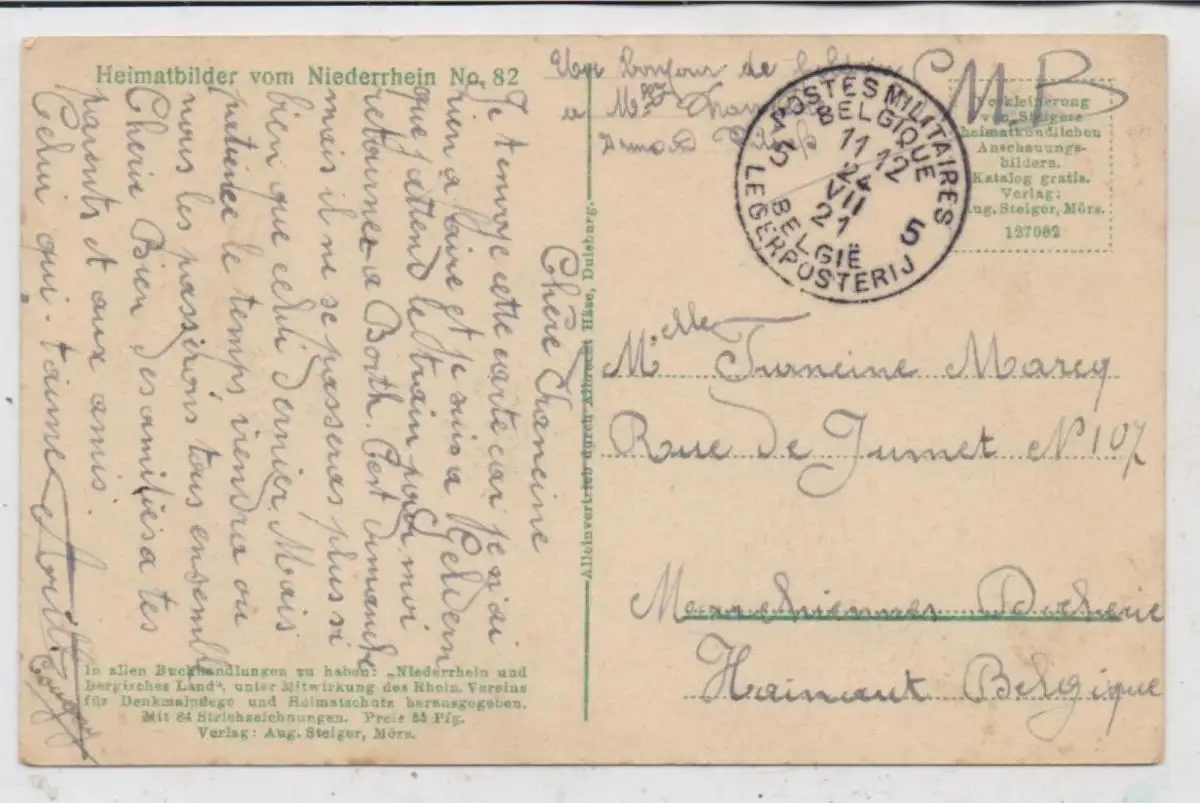 Heimatbilder vom Niederrhein No. 82
Chère Francine
Je t'envoye cette carte car je n'ai
rien a faire et je suis a Geldern
que j'attend le train pour moi
retourner a Borth. C'est dimanche
mais il ne se passeras plus si
bien que celui dernier Mais
patience le temps viendra ou
nous les passerons tous ensemble
Cherie Bien des amitiés a tes
parents et aux amis.
Celui qui t'aime
In allen Buchhandlungen zu haben: „Niederrhein und
Bergisches Land“, unter Mitwirkung des Rhein. Vereins
für Denkmalpflege und Heimatschutz herausgegeben.
Mit 84 Strichzeichnungen. Preis 85 Pfg.
Verlag: Aug. Steiger, Mörs.
Alleinvertrieb durch Albrecht Häse, Duisburg.
Un bonjour de
a
Armand
S.M.B
POSTES MILITAIRES
BELGIQUE
5 11-12 5
24
VII
21
BELGIË
LEGERPOSTERIJ
Verkleinerung
von Steigers
heimatkundlichen
Anschauungs-
bildern.
Katalog gratis.
Verlag:
Aug. Steiger, Mörs.
127082
Melle Francine Marcq
Rue de Jumet N° 107
Marchiennes Docherie
Hainaut Belgique